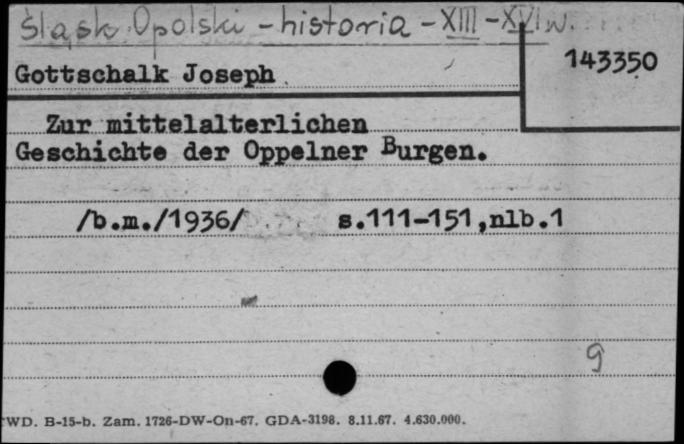 Śląsk Opolski - historia - XIII - XVI w.
143350
Gottschalk Joseph
Zur mittelalterlichen
Geschichte der Oppelner Burgen.
/b.m./1936/ s.111-151,nlb.1
9
WD. B-15-b. Zam. 1726-DW-On-67. GDA-3198. 8.11.67. 4.630.000.